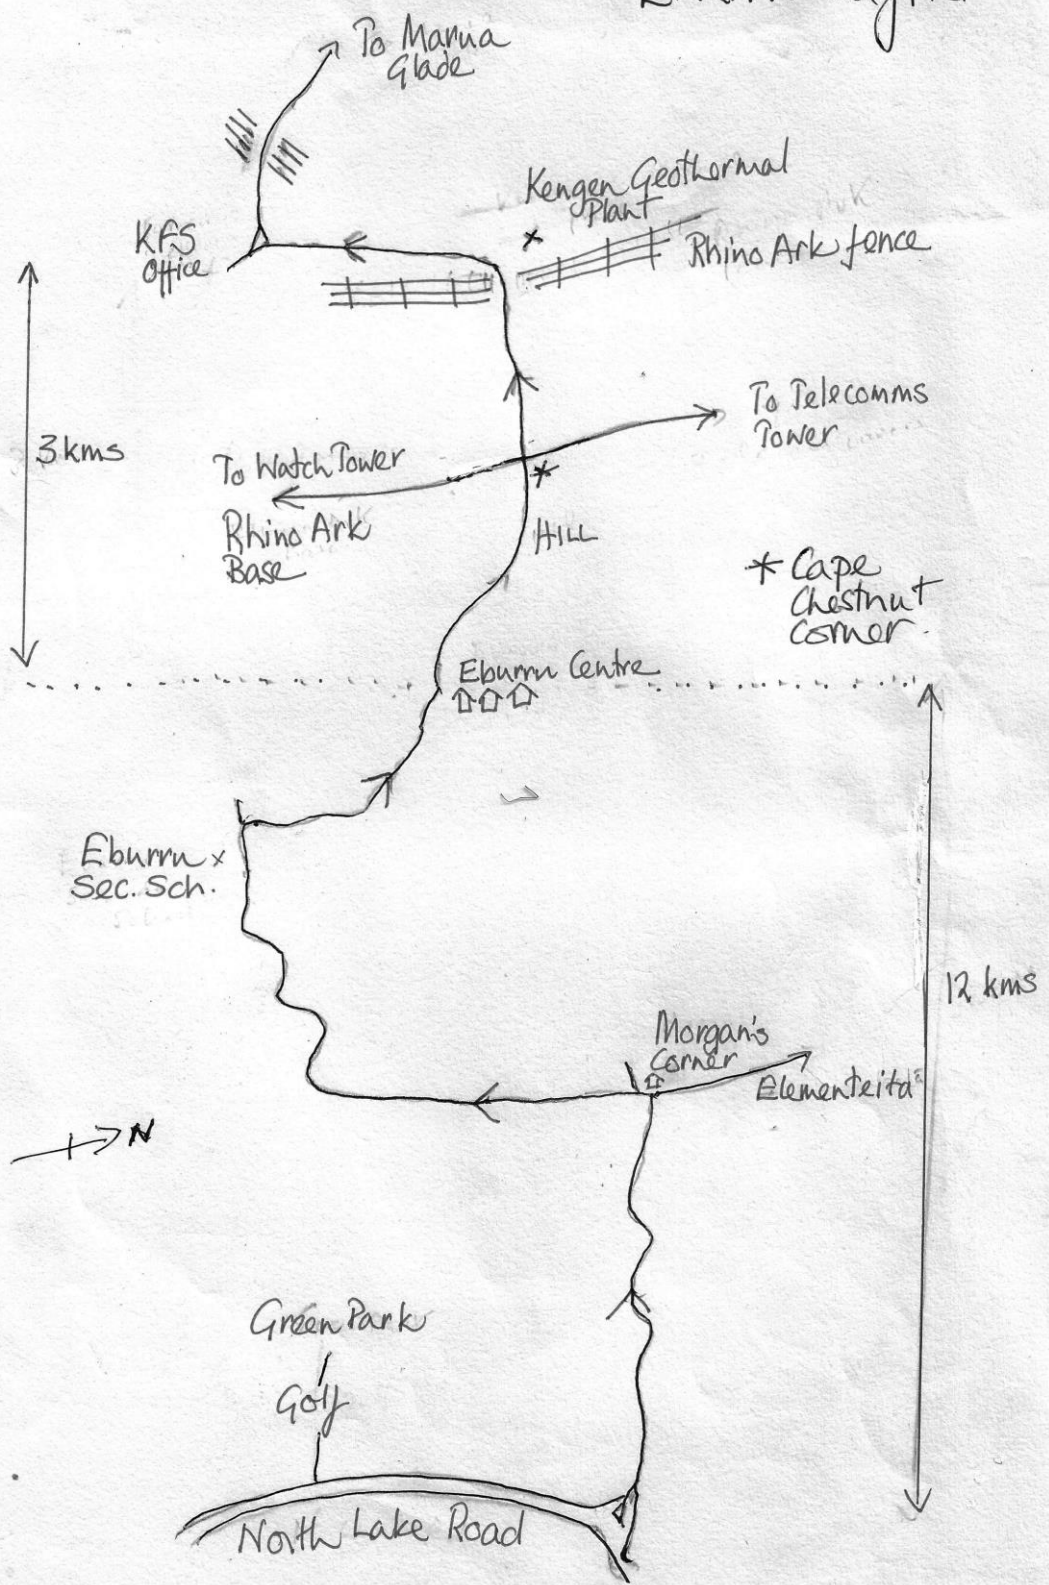 To Marua
Glade
Kengen Geothermal
Plant
KFS
Office
Rhino Ark fence
To Telecomms
Tower
3 kms
To Watch Tower
Rhino Ark
Base
HILL
* Cape
Chestnut
Corner.
Eburru Centre
Eburru x
Sec. Sch.
12 kms
Morgan's
Corner
Elementeita
N
Green Park
Golf
North Lake Road